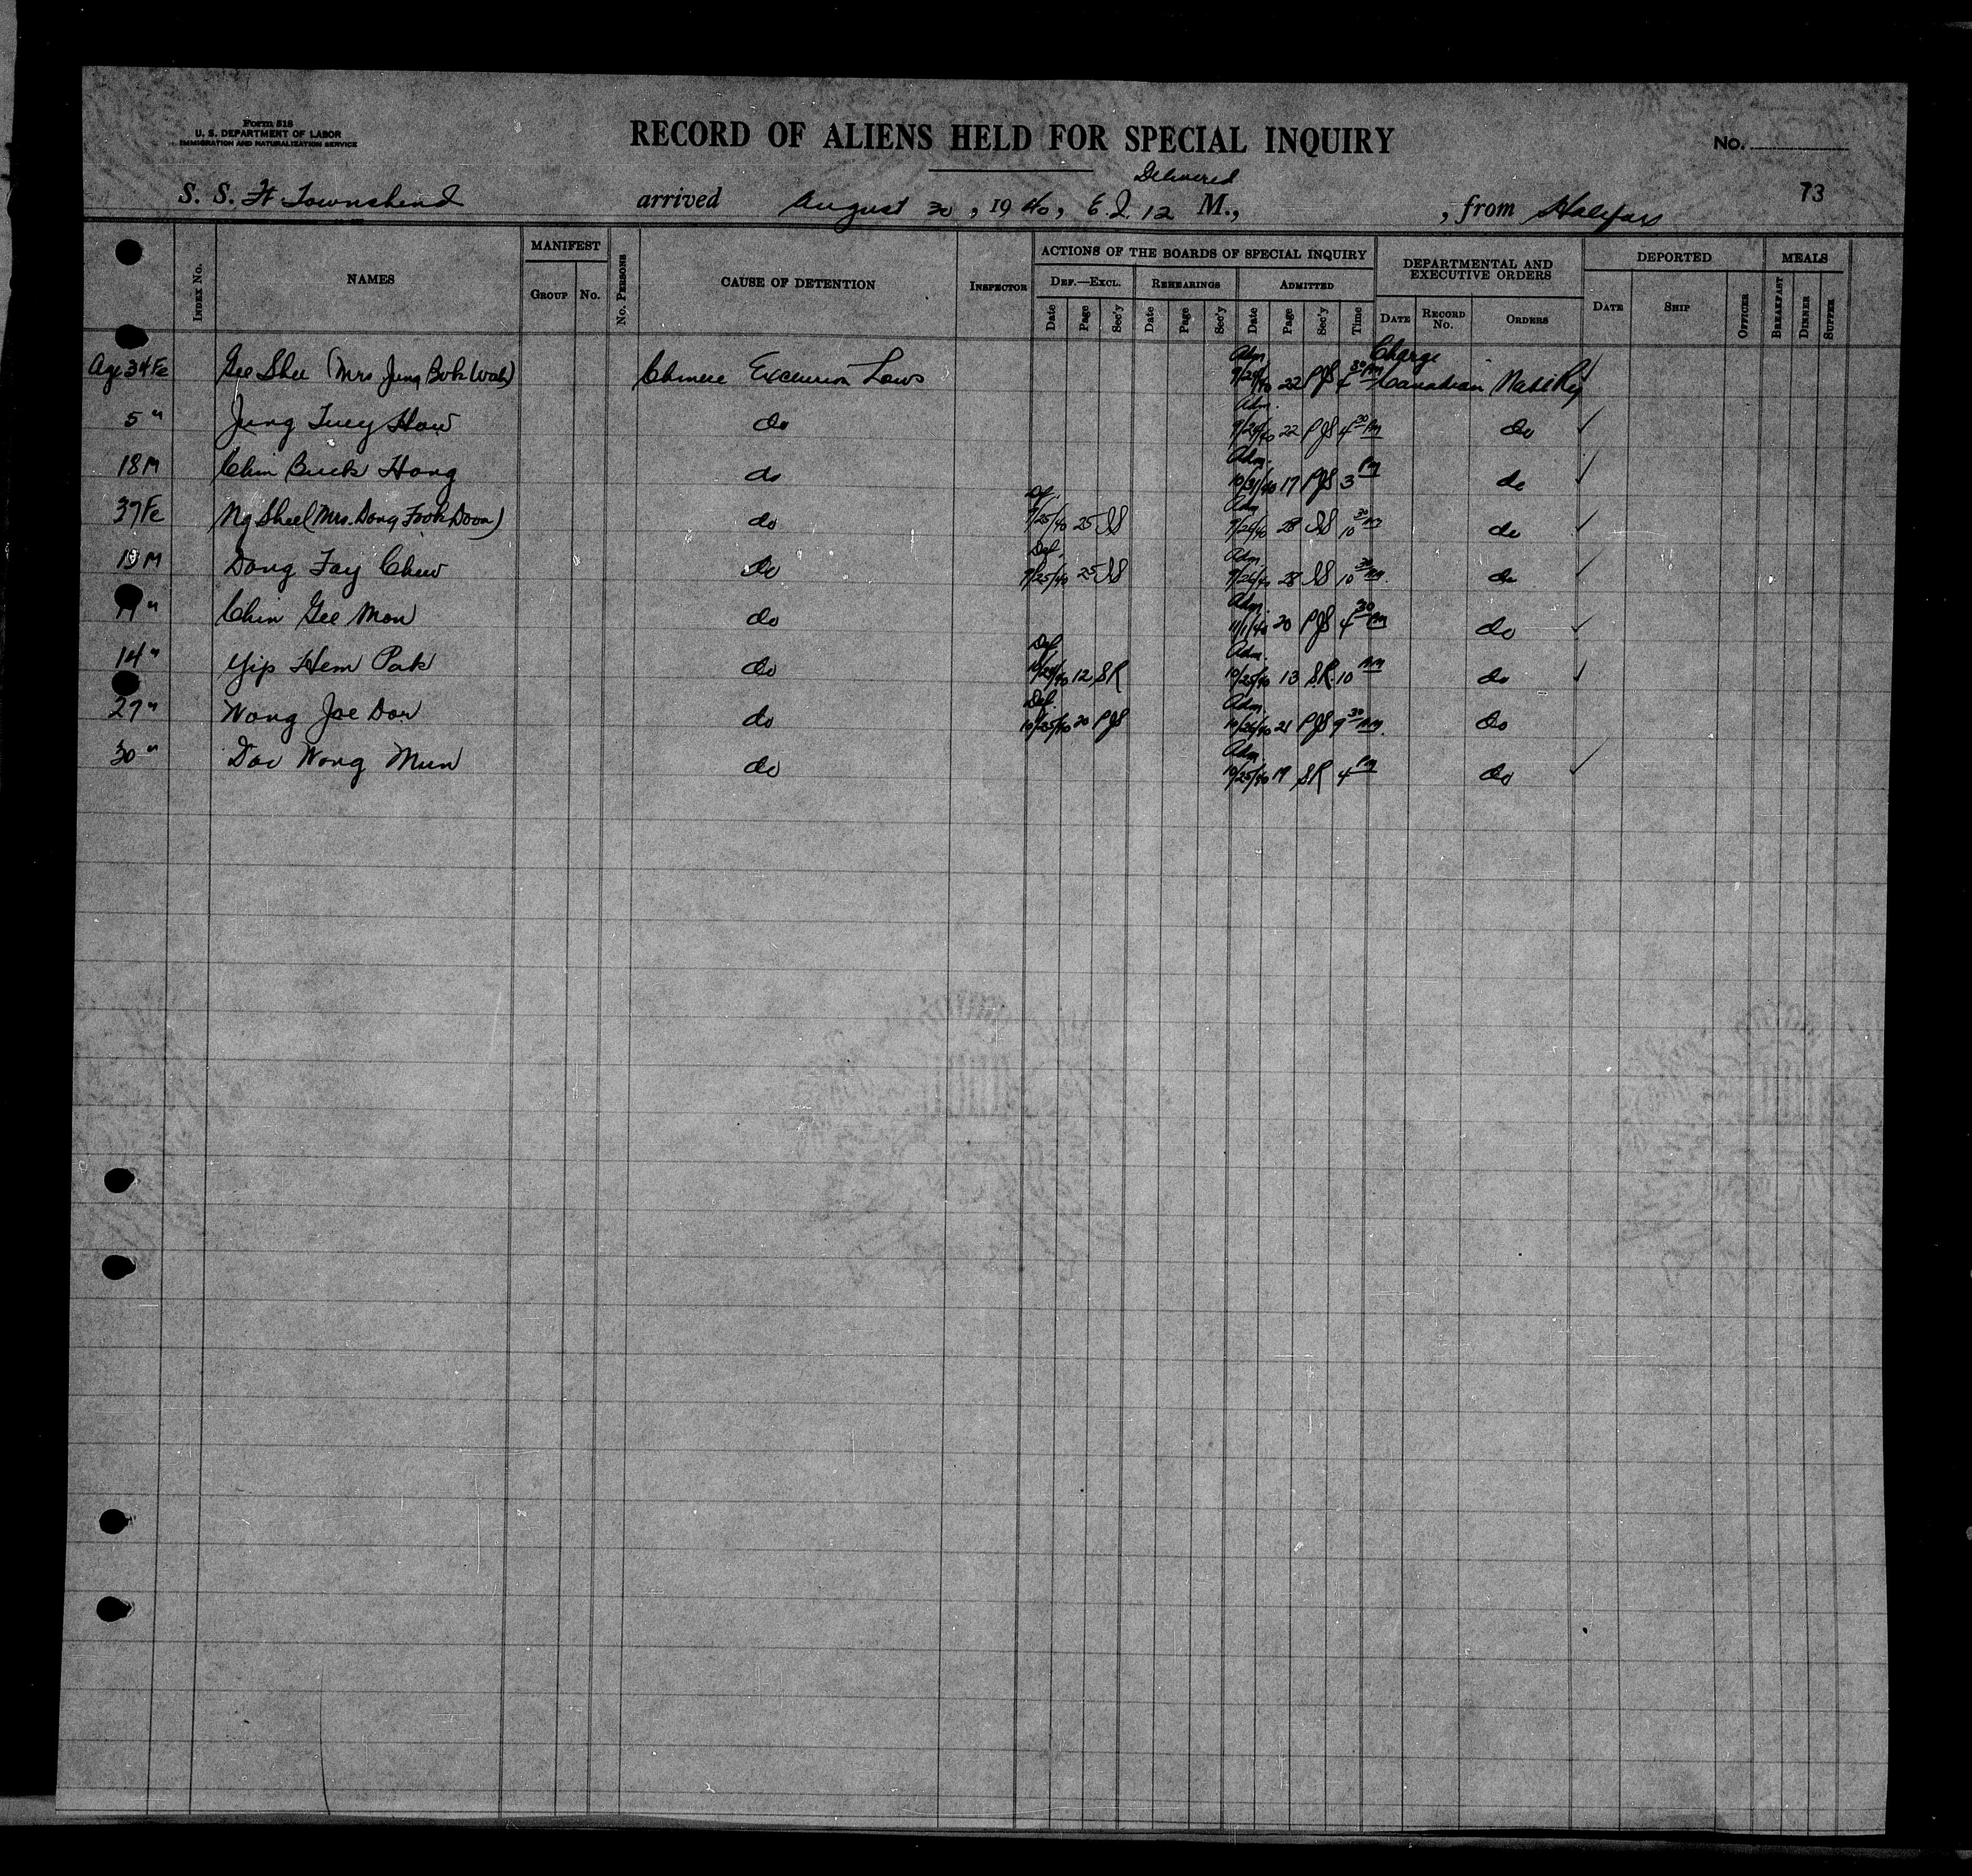 Form 518
U. S. DEPARTMENT OF LABOR
IMMIGRATION AND NATURALIZATION SERVICE
RECORD OF ALIENS HELD FOR SPECIAL INQUIRY
No.
73
Delivered
S. S. Ft Townshend arrived August 30, 1940, E. I. 12 M., , from Halifax
INDEX No. NAMES MANIFEST GROUP No. No. PERSONS CAUSE OF DETENTION INSPECTOR
ACTIONS OF THE BOARDS OF SPECIAL INQUIRY
DEF.—EXCL. Date Page Sec'y REHEARINGS Date Page Sec'y ADMITTED Date Page Sec'y Time
DEPARTMENTAL AND EXECUTIVE ORDERS DATE RECORD No. ORDERS
DEPORTED DATE SHIP OFFICER MEALS BREAKFAST DINNER SUPPER
Age 34 Fe Gee Shee (Mrs Jung Bok Wah) Chinese Exclusion Laws Adm. 22 PJS 4 30 PM Charge Canadian Natl Ry ✓
5 " Jung Suey How do Adm. 22 PJS 4 30 PM do ✓
18 M Chin Buck Hong do Adm. 10/31/40 17 PJS 3 PM do ✓
37 Fe Ng Shee (Mrs. Dong Fook Doon) do Def. 9/25/40 25 SS Adm 9/26/40 28 SS 10 30 AM do ✓
19 M Dong Fay Chew do Def. 9/25/40 25 SS Adm. 9/26/40 28 SS 10 30 AM. do ✓
" Chin Gee Mon do Adm. 11/1/40 20 PJS 4 30 PM do ✓
14 " Yip Hem Pak do Def 10/24/40 12 SR Adm. 10/25/40 13 S.R. 10 AM do ✓
27 " Wong Joe Dow do Def. 10/25/40 20 PJS Adm. 10/26/40 21 PJS 9 30 AM. do
30 " Wong Mun do Adm 10/25/40 19 SR 4 PM do ✓